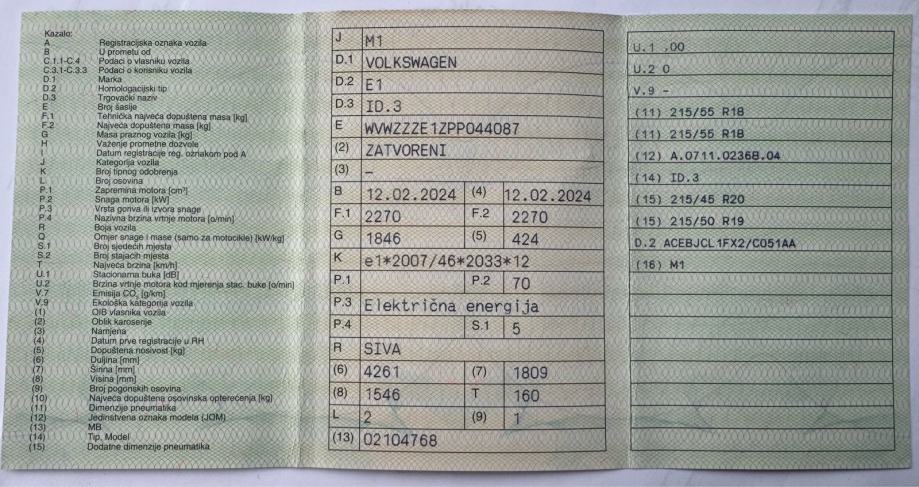 Kazalo:
A Registracijska oznaka vozila
B U prometu od
C.1.1-C.4 Podaci o vlasniku vozila
C.3.1-C.3.3 Podaci o korisniku vozila
D.1 Marka
D.2 Homologacijski tip
D.3 Trgovački naziv
E Broj šasije
F.1 Tehnička najveća dopuštena masa [kg]
F.2 Najveća dopuštena masa [kg]
G Masa praznog vozila [kg]
H Važenje prometne dozvole
I Datum registracije reg. oznakom pod A
J Kategorija vozila
K Broj tipnog odobrenja
L Broj osovina
P.1 Zapremina motora [cm³]
P.2 Snaga motora [kW]
P.3 Vrsta goriva ili izvora snage
P.4 Nazivna brzina vrtnje motora [o/min]
R Boja vozila
Q Omjer snage i mase (samo za motocikle) [kW/kg]
S.1 Broj sjedećih mjesta
S.2 Broj stajaćih mjesta
T Najveća brzina [km/h]
U.1 Stacionarna buka [dB]
U.2 Brzina vrtnje motora kod mjerenja stac. buke [o/min]
V.7 Emisija CO₂ [g/km]
V.9 Ekološka kategorija vozila
(1) OIB vlasnika vozila
(2) Oblik karoserije
(3) Namjena
(4) Datum prve registracije u RH
(5) Dopuštena nosivost [kg]
(6) Duljina [mm]
(7) Širina [mm]
(8) Visina [mm]
(9) Broj pogonskih osovina
(10) Najveća dopuštena osovinska opterećenja [kg]
(11) Dimenzije pneumatika
(12) Jedinstvena oznaka modela (JOM)
(13) MB
(14) Tip, Model
(15) Dodatne dimenzije pneumatika
J M1
D.1 VOLKSWAGEN
D.2 E1
D.3 ID.3
E WVWZZZE1ZPP044087
(2) ZATVORENI
(3) –
B 12.02.2024 (4) 12.02.2024
F.1 2270 F.2 2270
G 1846 (5) 424
K e1*2007/46*2033*12
P.1 P.2 70
P.3 Električna energija
P.4 S.1 5
R SIVA
(6) 4261 (7) 1809
(8) 1546 T 160
L 2 (9) 1
(13) 02104768
U.1 .00
U.2 0
V.9 -
(11) 215/55 R18
(11) 215/55 R18
(12) A.0711.02368.04
(14) ID.3
(15) 215/45 R20
(15) 215/50 R19
D.2 ACEBJCL1FX2/C051AA
(16) M1